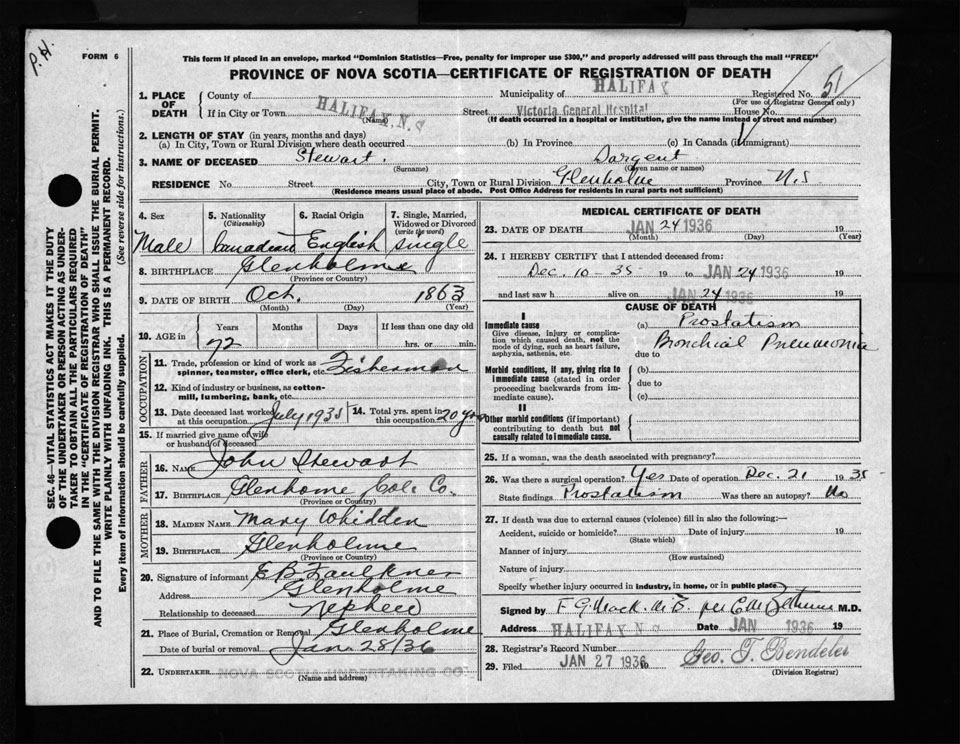 P.H.
FORM 6
This form if placed in an envelope, marked "Dominion Statistics—Free, penalty for improper use $300," and properly addressed will pass through the mail "FREE"
PROVINCE OF NOVA SCOTIA—CERTIFICATE OF REGISTRATION OF DEATH
SEC. 46—VITAL STATISTICS ACT MAKES IT THE DUTY
OF THE UNDERTAKER OR PERSON ACTING AS UNDER-
TAKER TO OBTAIN ALL THE PARTICULARS REQUIRED
IN THE "CERTIFICATE OF REGISTRATION OF DEATH"
AND TO FILE THE SAME WITH THE DIVISION REGISTRAR WHO SHALL ISSUE THE BURIAL PERMIT.
WRITE PLAINLY WITH UNFADING INK. THIS IS A PERMANENT RECORD.
Every item of information should be carefully supplied. (See reverse side for instructions.)
1. PLACE OF DEATH
County of Municipality of HALIFAX Registered No. 51
(For use of Registrar General only)
If in City or Town HALIFAX, N.S Street Victoria General Hospital House No.
(Name) (If death occurred in a hospital or institution, give the name instead of street and number)
2. LENGTH OF STAY (in years, months and days)
(a) In City, Town or Rural Division where death occurred (b) In Province (c) In Canada (if immigrant)
3. NAME OF DECEASED Stewart. Sargent
(Surname) (Given name or names)
RESIDENCE No. Street City, Town or Rural Division Glenholme Province N.S
(Residence means usual place of abode. Post Office Address for residents in rural parts not sufficient)
4. Sex Male
5. Nationality (Citizenship) Canadian
6. Racial Origin English
7. Single, Married, Widowed or Divorced (write the word) single
8. BIRTHPLACE Glenholme
(Province or Country)
9. DATE OF BIRTH Oct. 1863
(Month) (Day) (Year)
10. AGE in Years 72 Months Days If less than one day old hrs. or min.
OCCUPATION
11. Trade, profession or kind of work as spinner, teamster, office clerk, etc. Fisherman
12. Kind of industry or business, as cotton-mill, lumbering, bank, etc.
13. Date deceased last worked at this occupation July 1935
14. Total yrs. spent in this occupation 20 yrs
15. If married give name of wife or husband of deceased
FATHER
16. NAME John Stewart
17. BIRTHPLACE Glenhome Col. Co.
(Province or Country)
MOTHER
18. MAIDEN NAME Mary Whidden
19. BIRTHPLACE Glenholme
(Province or Country)
20. Signature of informant E B Faulkner
Address Glenholme
Relationship to deceased Nephew
21. Place of Burial, Cremation or Removal Glenholme
Date of burial or removal Jan 28/36
22. UNDERTAKER NOVA SCOTIA UNDERTAKING CO
(Name and address)
MEDICAL CERTIFICATE OF DEATH
23. DATE OF DEATH JAN 24 1936
(Month) (Day) (Year)
24. I HEREBY CERTIFY that I attended deceased from:
Dec. 10-35 19 to JAN 24 1936 19
and last saw h alive on JAN 24 1936 19
CAUSE OF DEATH
I
Immediate cause
Give disease, injury or complica-
tion which caused death, not the
mode of dying, such as heart failure,
asphyxia, asthenia, etc.
(a) Prostatism
Bronchial Pneumonia
due to
Morbid conditions, if any, giving rise to
immediate cause (stated in order
proceeding backwards from im-
mediate cause).
(b)
due to
(c)
II
Other morbid conditions (if important)
contributing to death but not
causally related to immediate cause.
25. If a woman, was the death associated with pregnancy?
26. Was there a surgical operation? Yes Date of operation Dec. 21 1935
State findings Prostatism Was there an autopsy? No
27. If death was due to external causes (violence) fill in also the following:—
Accident, suicide or homicide? Date of injury 19
(State which)
Manner of injury
(How sustained)
Nature of injury
Specify whether injury occurred in industry, in home, or in public place
Signed by F G Mack M.B. per M.D.
Address HALIFAX N S Date JAN 1936 19
28. Registrar's Record Number
29. Filed JAN 27 1936 Geo. T. Bendeler
(Division Registrar)